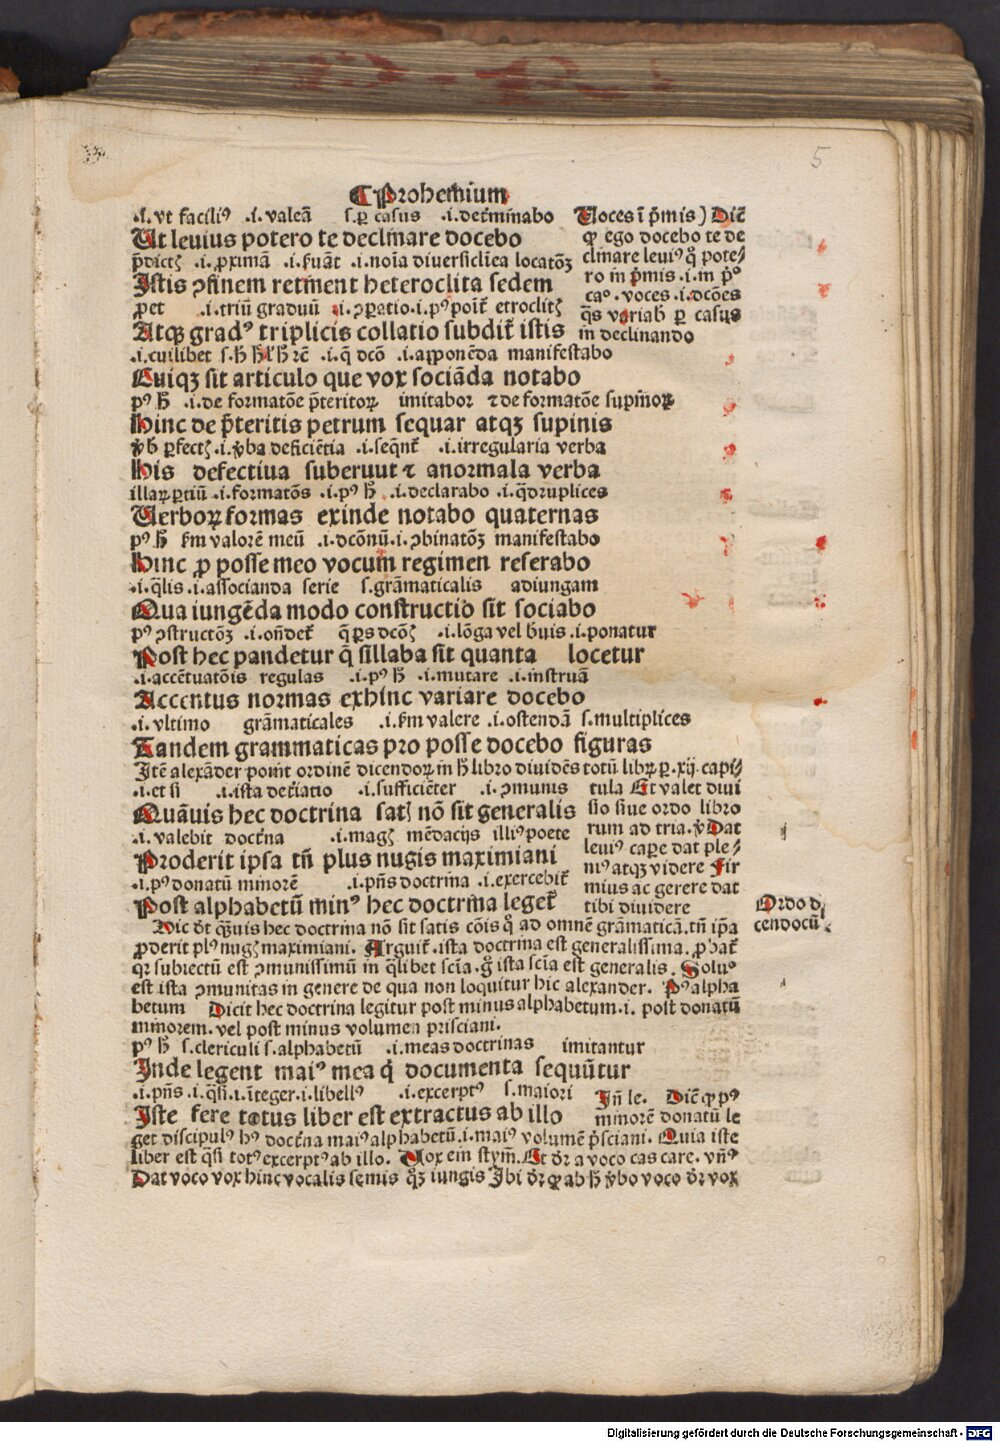 5
¶ Prohemium
.i. vt faciliꝰ .i. valeā s. ꝑ casus .i. determinabo
Ut levius potero te declinare docebo
p̄dictꝭ .i. ꝓximā .i. ẜuāt .i. noīa diuersiclīea locatōꝫ
Istis ↄfinem retinent heteroclita sedem
.i. triū graduū .i. ↄꝑatio .i. pꝰ etroclitꝭ
Atqꝫ gradꝰ triplicis collatio subdit̄ istis
.i. cuilibet .i. q̄ dcō .i. aꝓponēda manifestabo
Cuiqꝫ sit articulo que vox sociāda notabo
pꝰ ħ .i. de formatōe p̄teritoꝝ imitabor ⁊ de formatōe supinoꝝ
Hinc de p̄teritis petrum sequar atqꝫ supinis
ꝑfectꝭ .i. v̄ba deficiētia .i. seq̄nt̄ .i. irregularia verba
His defectiua suberuut ⁊ anormala verba
illaꝝ ꝑtiū .i. formatōs .i. pꝰ ħ .i. declarabo .i. q̄druplices
Verboꝝ formas exinde notabo quaternas
pꝰ ħ ẜm valorē meū .i. dcōnū .i. ↄbinatōꝫ manifestabo
Hinc ꝓ posse meo vocum regimen reserabo
.i. q̄lis .i. associanda serie s. grāmaticalis adiungam
Qua iungēda modo constructio sit sociabo
pꝰ ↄstructōꝫ .i. oñdet̄ q̄ ꝑs dcōꝭ .i. lōga vel b̄uis .i. ponatur
Post hec pandetur q̄ sillaba sit quanta locetur
.i. accētuatōis regulas .i. pꝰ ħ .i. mutare .i. instruā
Accentus normas exhinc variare docebo
.i. vltimo grāmaticales .i. ẜm valere .i. ostendā s. multiplices
Tandem grammaticas pro posse docebo figuras
Voces ī p̄mis) Dic̄
ꝙ ego docebo te de
clinare leuiꝰ qͦ pote⸗
ro in p̄mis .i. in pͦ
caͦ. voces .i. dcōes
q̄s variab ꝑ casus
in declinando
Itē alexāder ponit ordinē dicendoꝝ in ħ libro diuidēs totū libꝝ ꝑ .xij. capi⸗
.i. et si .i. ista det̄iatio .i. sufficiēter .i. ↄmunis
Quāuis hec doctrina satꝭ nō sit generalis
.i. valebit doctrina .i. magꝭ mēdacijs illiꝰ poete
Proderit ipsa tn̄ plus nugis maximiani
.i. pꝰ donatū minorē .i. pn̄s doctrina .i. exercebit̄
Post alphabetū minꝰ hec doctrina leget̄
tula Et valet diui
sio siue ordo libro
rum ad tria. v̄ Dat
leuiꝰ capere dat ple⸗
niꝰ atqꝫ videre Fir
mius ac gerere dat
tibi diuidere
Ordo d
cendocū
Hic dt̄ qͣuis hec doctrina nō sit satis cōis qͦ ad omnē grāmaticā. tn̄ ip̄a
ꝓderit plꝰ nugꝭ maximiani. Arguit̄. ista doctrina est generalissima. ꝓbat̄
qꝛ subiectū est ↄmunissimū in q̄libet scīa. gͦ ista scīa est generalis. Soluꝰ
est ista ↄmunitas in genere de qua non loquitur hic alexander. Pꝰ alpha
betum Dicit hec doctrina legitur post minus alphabetum .i. post donatū
minorem. vel post minus volumen prisciani.
pꝰ ħ s. clericuli s. alphabetū .i. meas doctrinas imitantur
Inde legent maiꝰ mea q̄ documenta sequūtur
.i. pn̄s .i. qͣsi .i. īteger .i. libellꝰ .i. excerptꝰ s. maiori
Iste fere totus liber est extractus ab illo
In̄ le. Dic̄ ꝙ pꝰ
minorē donatū le
get discipulꝰ hꝰ doctr̄na maiꝰ alphabetū .i. maiꝰ volumē p̄sciani. Quia iste
liber est qͣsi totꝰ excerptꝰ ab illo. Vox ein stym̄. Et dr̄ a voco cas care. vn̄ꝰ
Dat voco vox hinc vocalis semis qͦꝫ iungis Ibi dr̄ ꝙ ab ħ v̄bo voco dr̄ vox
Digitalisierung gefördert durch die Deutsche Forschungsgemeinschaft - DFG